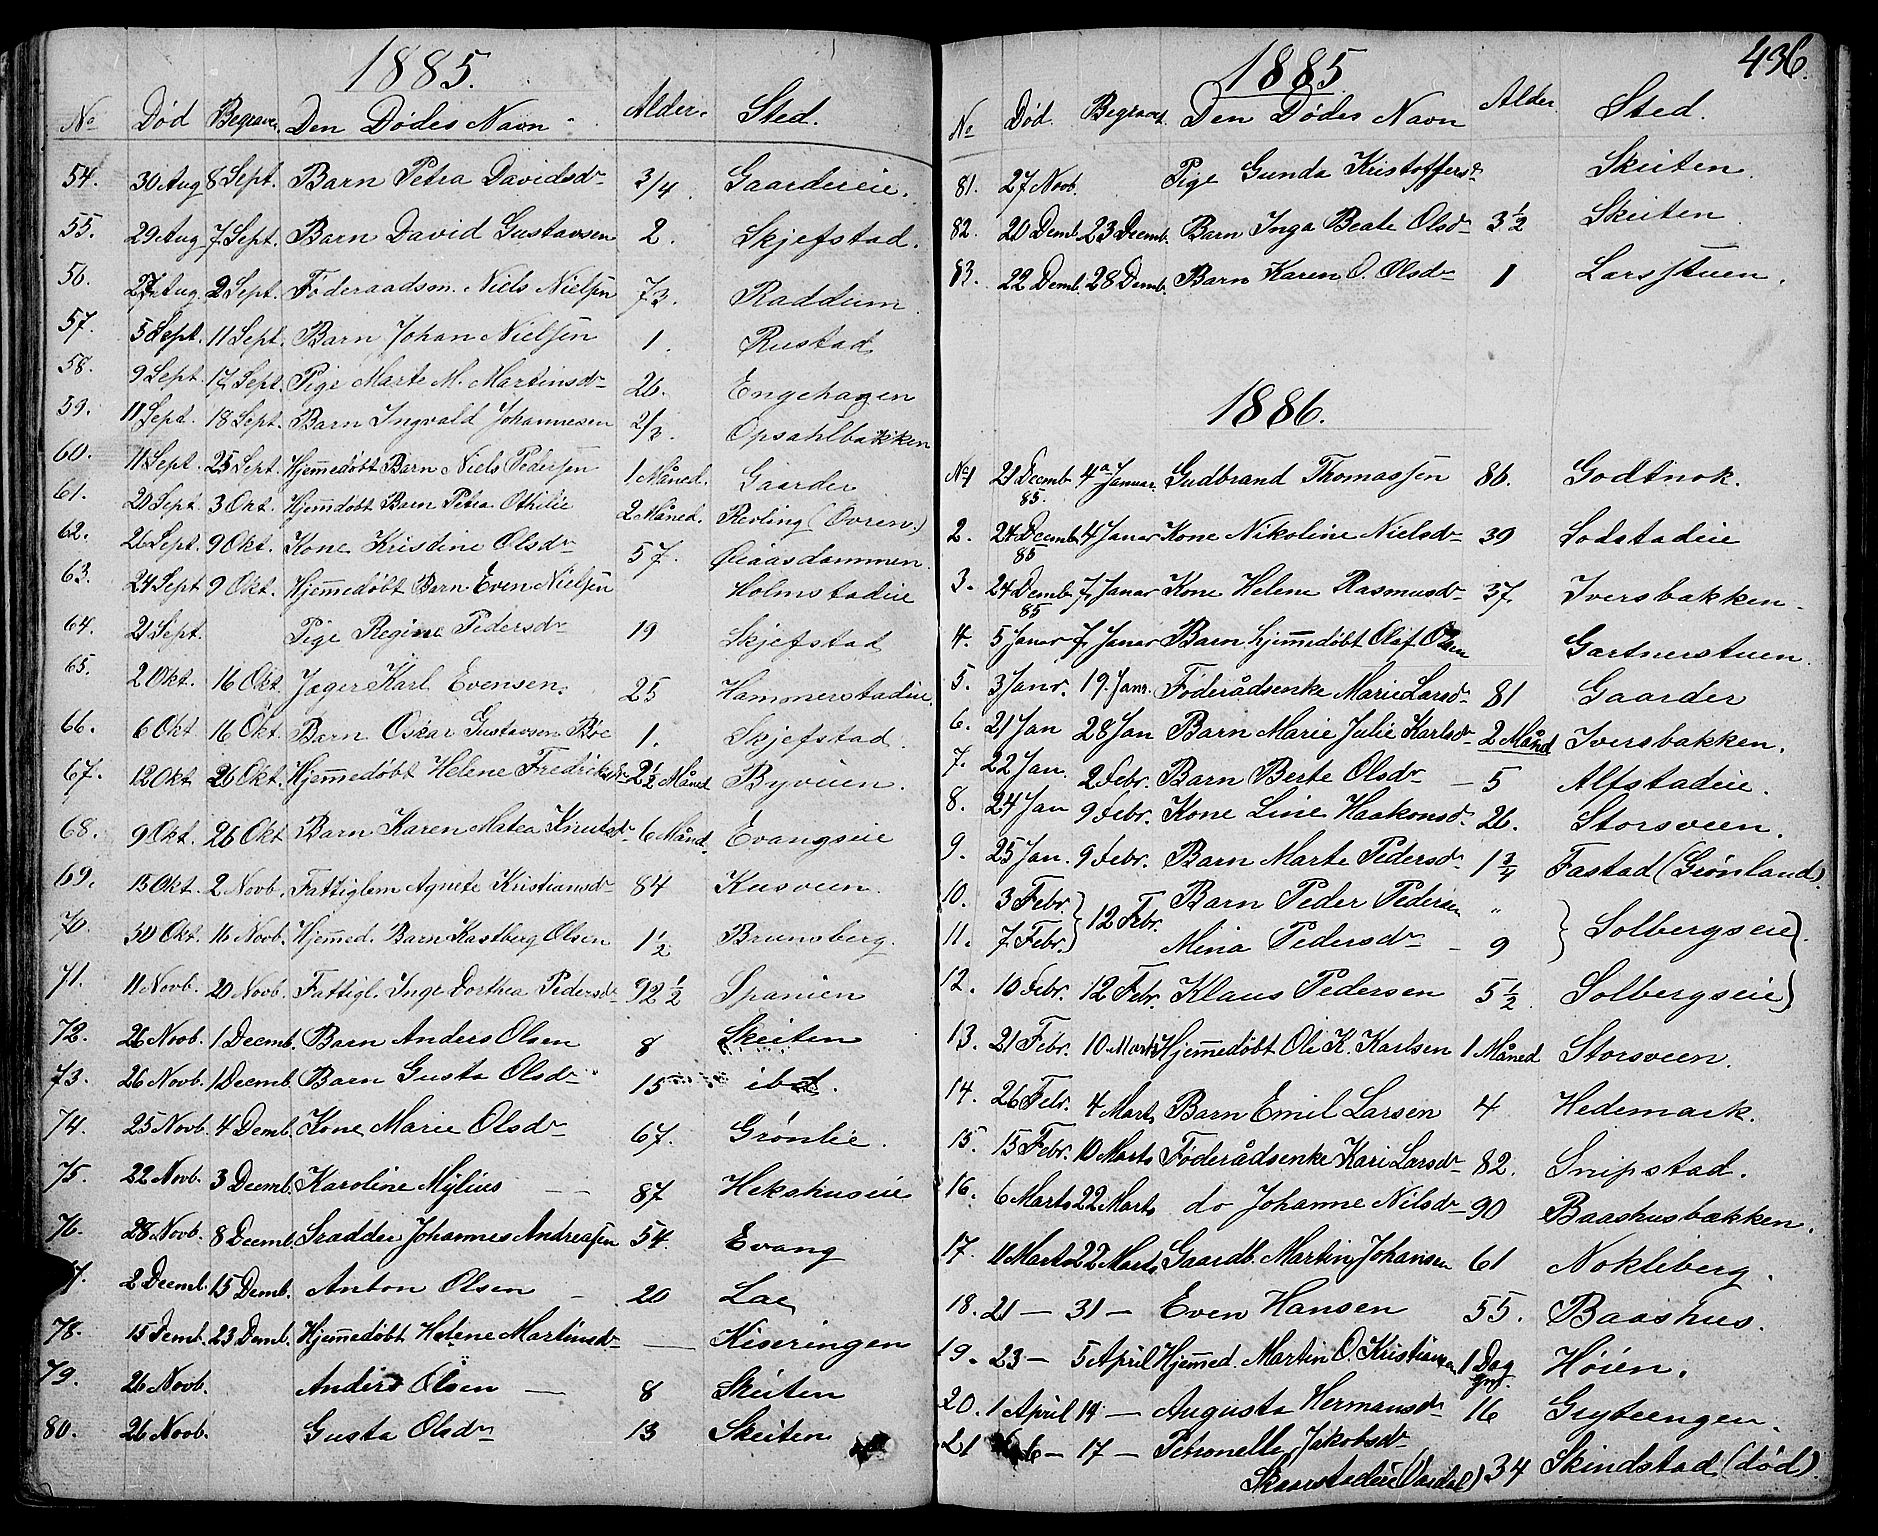 1885.
No Død Begravet Den Dødes Navn Alder. Sted.
54. 30 Aug 8 Sept. Barn Petra Davidsdr 3/4 Gaardereie.
55. 29 Aug 7 Sept. Barn David Gustavsen 2. Skjefstad.
56. 27 Aug. 2 Sept. Føderaadsm. Niels Nielsen 73. Raddum
57. 5 Sept. 11 Sept. Barn Johan Nielsen 1. Rustad
58. 9 Sept. 17 Sept. Pige Marte M. Martinsdr 26. Engehagen
59. 11 Sept. 18 Sept. Barn Ingvald Johannesen 2/3. Opsahlbakken
60. 11 Sept. 25 Sept. Hjemmedøbt Barn Niels Pedersen 1 Måned. Gaarder
61. 20 Sept. 3 Okt. Hjemdøbt Barn Petra Othilie 2 Måned. Revling (Øvren.)
62. 26 Sept. 9 Okt. Kone Krisdine Olsdr 57.
63. 24 Sept 9 Okt. Hjemmedøbt Barn Even Nielsen Holmstadeie
64. 21 Sept. Pige Regine Pedersdr 19 Skjefstad
65. 2 Okt. 16 Okt Jæger Karl Evensen. 25 Hammerstadeie.
66. 6 Okt 16 Okt. Barn Oscar Gustavsen Böe 1. Skjefstad.
67. 12 Okt 26 Okt. Hjemmedøbt Helene Fredriksdr 2 1/2 Måned Byveien.
68. 9 Okt. 26 Okt Barn Karen Matea Knutsdr 6 Månd. Evangseie
69. 15 Okt. 2 Novb. Fattiglem Agnete Kristiansdr 84 Kusveen.
70. 30 Okt. 16 Novb. Hjemmed. Barn Kastberg Olsen 1 1/2 Brunsberg.
71. 11 Novb. 20 Novb. Fattigl. Inge Dorthea Pedersdr 92 1/2 Spanien
72. 26 Novb. 1 Decmb. Barn Anders Olsen 8 Skeiten
73. 26 Novb. 1 Decmb. Barn Gusta Olsdr 15 ibd.
74. 25 Novb. 4 Demb. Kone Marie Olsdr 67. Grønlie.
75. 22 Novb. 3 Decmb. Karoline Mylius 87 Hekshuseie
76. 28 Novb. 8 Decmb. Skrædder Johannes Andreasen 54. Evang
77. 2 Decmb. 15 Demb. Anton Olsen 20 Lae
78. 15 Demb. 23 Demb. Hjemmedøbt Helene Martinsdr Kiseringen
79. 26 Novb. Anders Olsen 8 Skeiten
80. 26 Novb. Gusta Olsdr 13 Skeiten
436.
1885
No Død. Begravet. Den Dødes Navn Alder Sted.
81. 27 Novb. Pige Gunda Kristoffersdr Skeiten.
82. 20 Demb. 23 Decmb. Barn Inga Beate Olsdr 3 1/2 Skeiten.
83. 22 Demb. 28 Demb. Barn Karen O. Olsdr 1 Larsstuen.
1886.
No 1 21 Decmb 85. 4a Januar. Gudbrand Thomassen 86. Godtnok.
2. 24 Decemb 85 4 Januar Kone Nikoline Nielsdr 39 Lodstadeie
3. 24 Demb 85 7 Januar Kone Helene Rasmusdr 37. Iversbakken.
4. 5 Januar 7 Januar Barn hjemmedøbt Olaf Olsen Gartnerstuen.
5. 3 Janr. 19. Janr. Føderådsenke Marie Larsdr 81 Gaarder
6. 21 Jan 28 Jan Barn Marie Julie Karlsdr 2 Månd Iversbakken.
7. 22 Jan. 2 Febr. Barn Berte Olsdr — 5 Alfstadeie.
8. 24 Jan 9 Febr. Kone Line Haakonsdr 26. Storsveen.
9. 25 Jan. 9 Febr. Barn Marte Pedersdr 1 3/4 Fastad (Grønland).
10. 3 Febr. } 12 Febr. Barn Peder Pedersen " } Solbergseie }.
11. 7 Febr. Mina Pedersdr — 9
12. 10 Febr. 12 Febr. Klaus Pedersen 5 1/2 Solbergseie }
13. 21 Febr. 10 Marts Hjemmedøbt Ole K. Karlsen 1 Måned Storsveen.
14. 26 Febr. 4 Marts Barn Emil Larsen 4 Hedemark.
15. 15 Febr. 10 Marts Føderådsenke Kari Larsdr 82. Snipstad.
16. 6 Marts 22 Marts do Johanne Nilsdr 90 Baashusbakken.
17. 11 Marts 22 Marts Gaardb. Martin Johansen 61 Nokleberg.
18. 21 — 31 — Even Hansen 55. Baashus.
19. 23 — 5 April Hjemmed. Martin O. Kristiansen 1 Dag gml. Høien.
20. 1 April 14 — Augusta Hermansdr 16 Gryteengen.
21 6 — 17 — Petronelle Jakobsdr
Skaarstadeie (Vardal) 34 Skindstad (død)